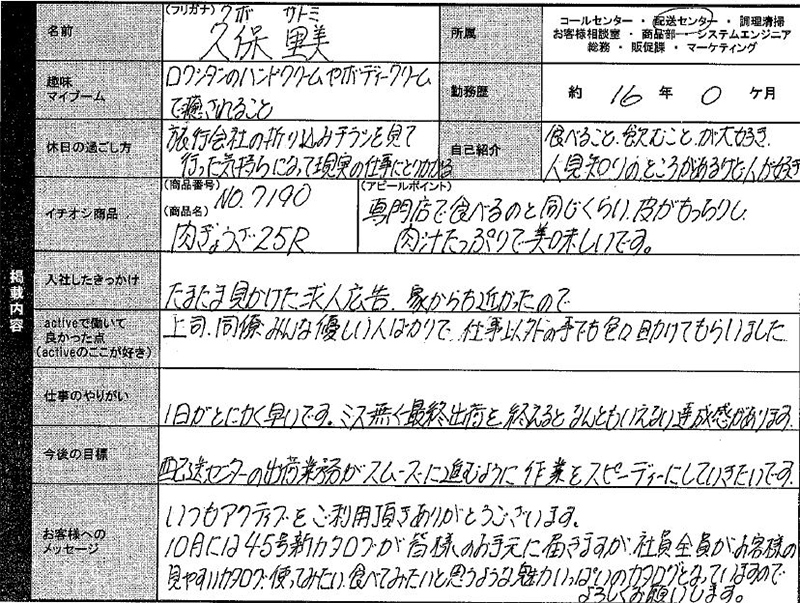 掲載内容
名前
(フリガナ) クボ サトミ
久保 里美
所属
コールセンター ・ 配送センター ・ 調理清掃
お客様相談室 ・ 商品部 ・ システムエンジニア
総務 ・ 販促課 ・ マーケティング
趣味
マイブーム
ロクシタンのハンドクリームやボディークリーム
で癒されること
勤務歴
約 16 年 0 ヶ月
休日の過ごし方
旅行会社の折り込みチラシを見て
行った気持ちになって現実の仕事にとりかかる
自己紹介
食べること、飲むこと、が大好き、
人見知りのところがあるけど人が好き
イチオシ商品
(商品番号) NO.7190
(商品名)
肉ぎょうざ25R
(アピールポイント)
専門店で食べるのと同じくらい、皮がもっちりし、
肉汁たっぷりで美味しいです。
入社したきっかけ
たまたま見かけた求人広告、家からも近かったので
activeで働いて
良かった点
(activeのここが好き)
上司、同僚みんな優しい人ばかりで、仕事以外の事でも色々助けてもらいました
仕事のやりがい
1日がとにかく早いです。ミス無く最終出荷を終えるとなんともいえない達成感があります。
今後の目標
配送センターの出荷業務がスムーズに進むように作業をスピーディーにしていきたいです。
お客様への
メッセージ
いつもアクティブをご利用頂きありがとうございます。
10月には45号新カタログが皆様のお手元に届きますが、社員全員がお客様の
見やすいカタログ、使ってみたい、食べてみたいと思うような魅力いっぱいのカタログとなっていますので
よろしくお願いします。